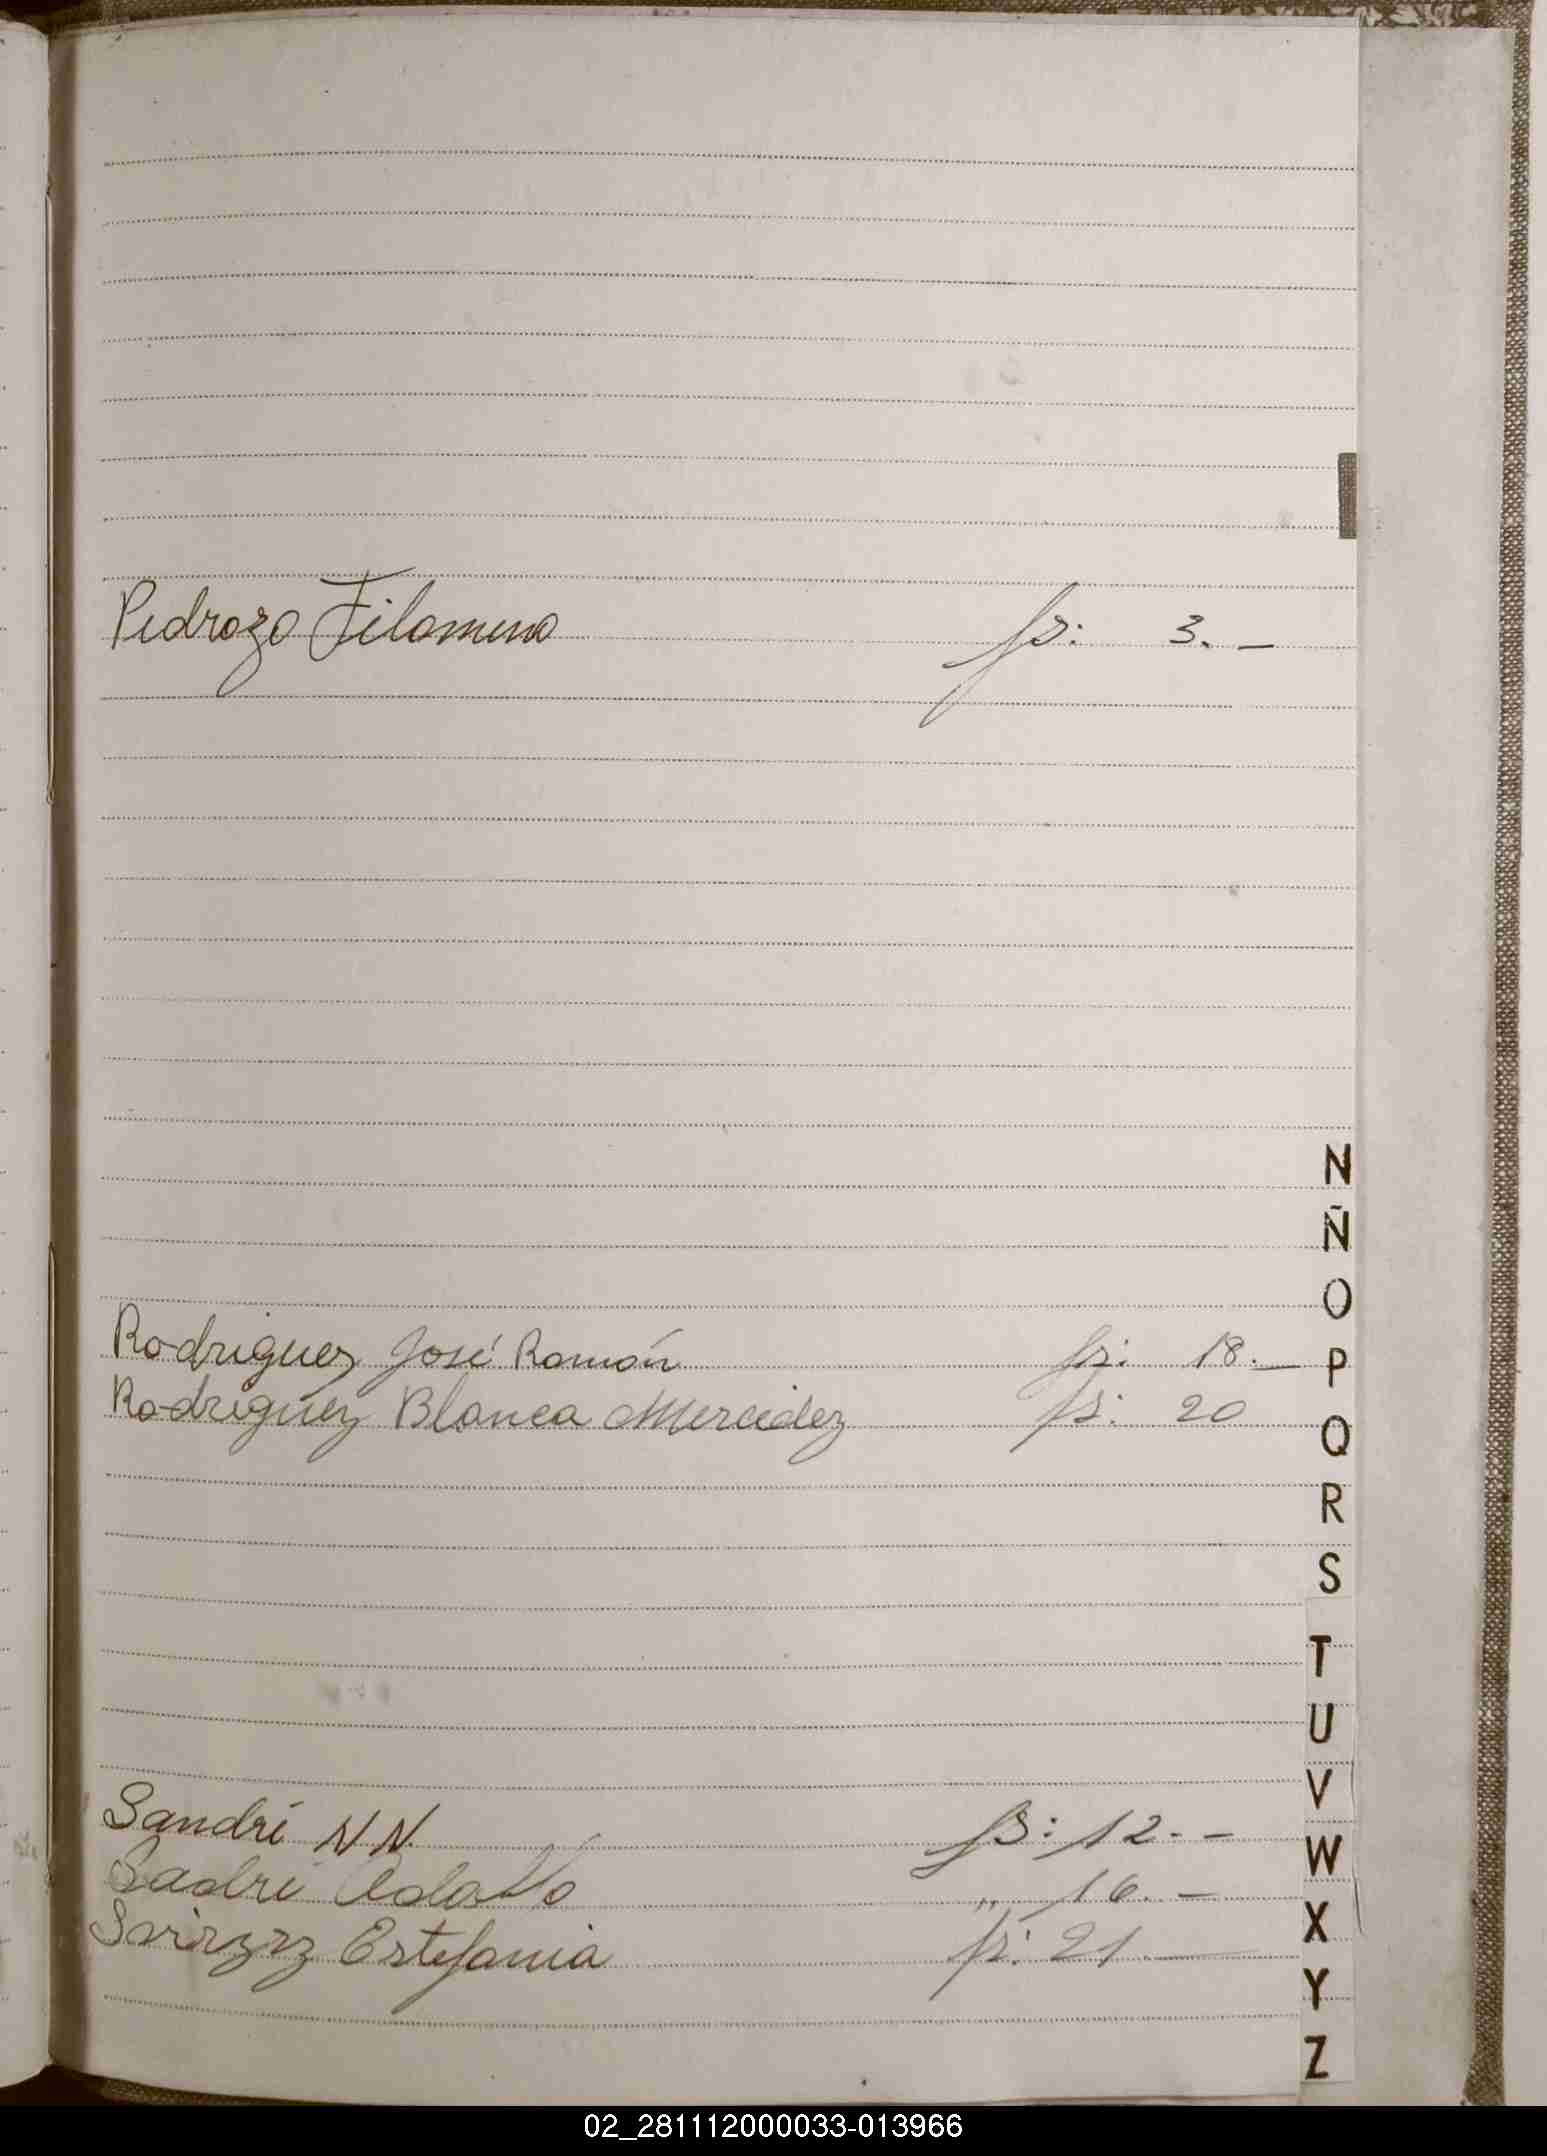 Pedrozo Filomena fs: 3. —
N
Ñ
O
Rodriguez José Ramón fs: 18. —
P
Rodriguez Blanca Mercedez fs: 20
Q
R
S
T
U
V
Sandri N N. fs: 12. —
W
Sadri Adolfo " 16. —
X
Estefania fs: 21. —
Y
Z
02_281112000033-013966